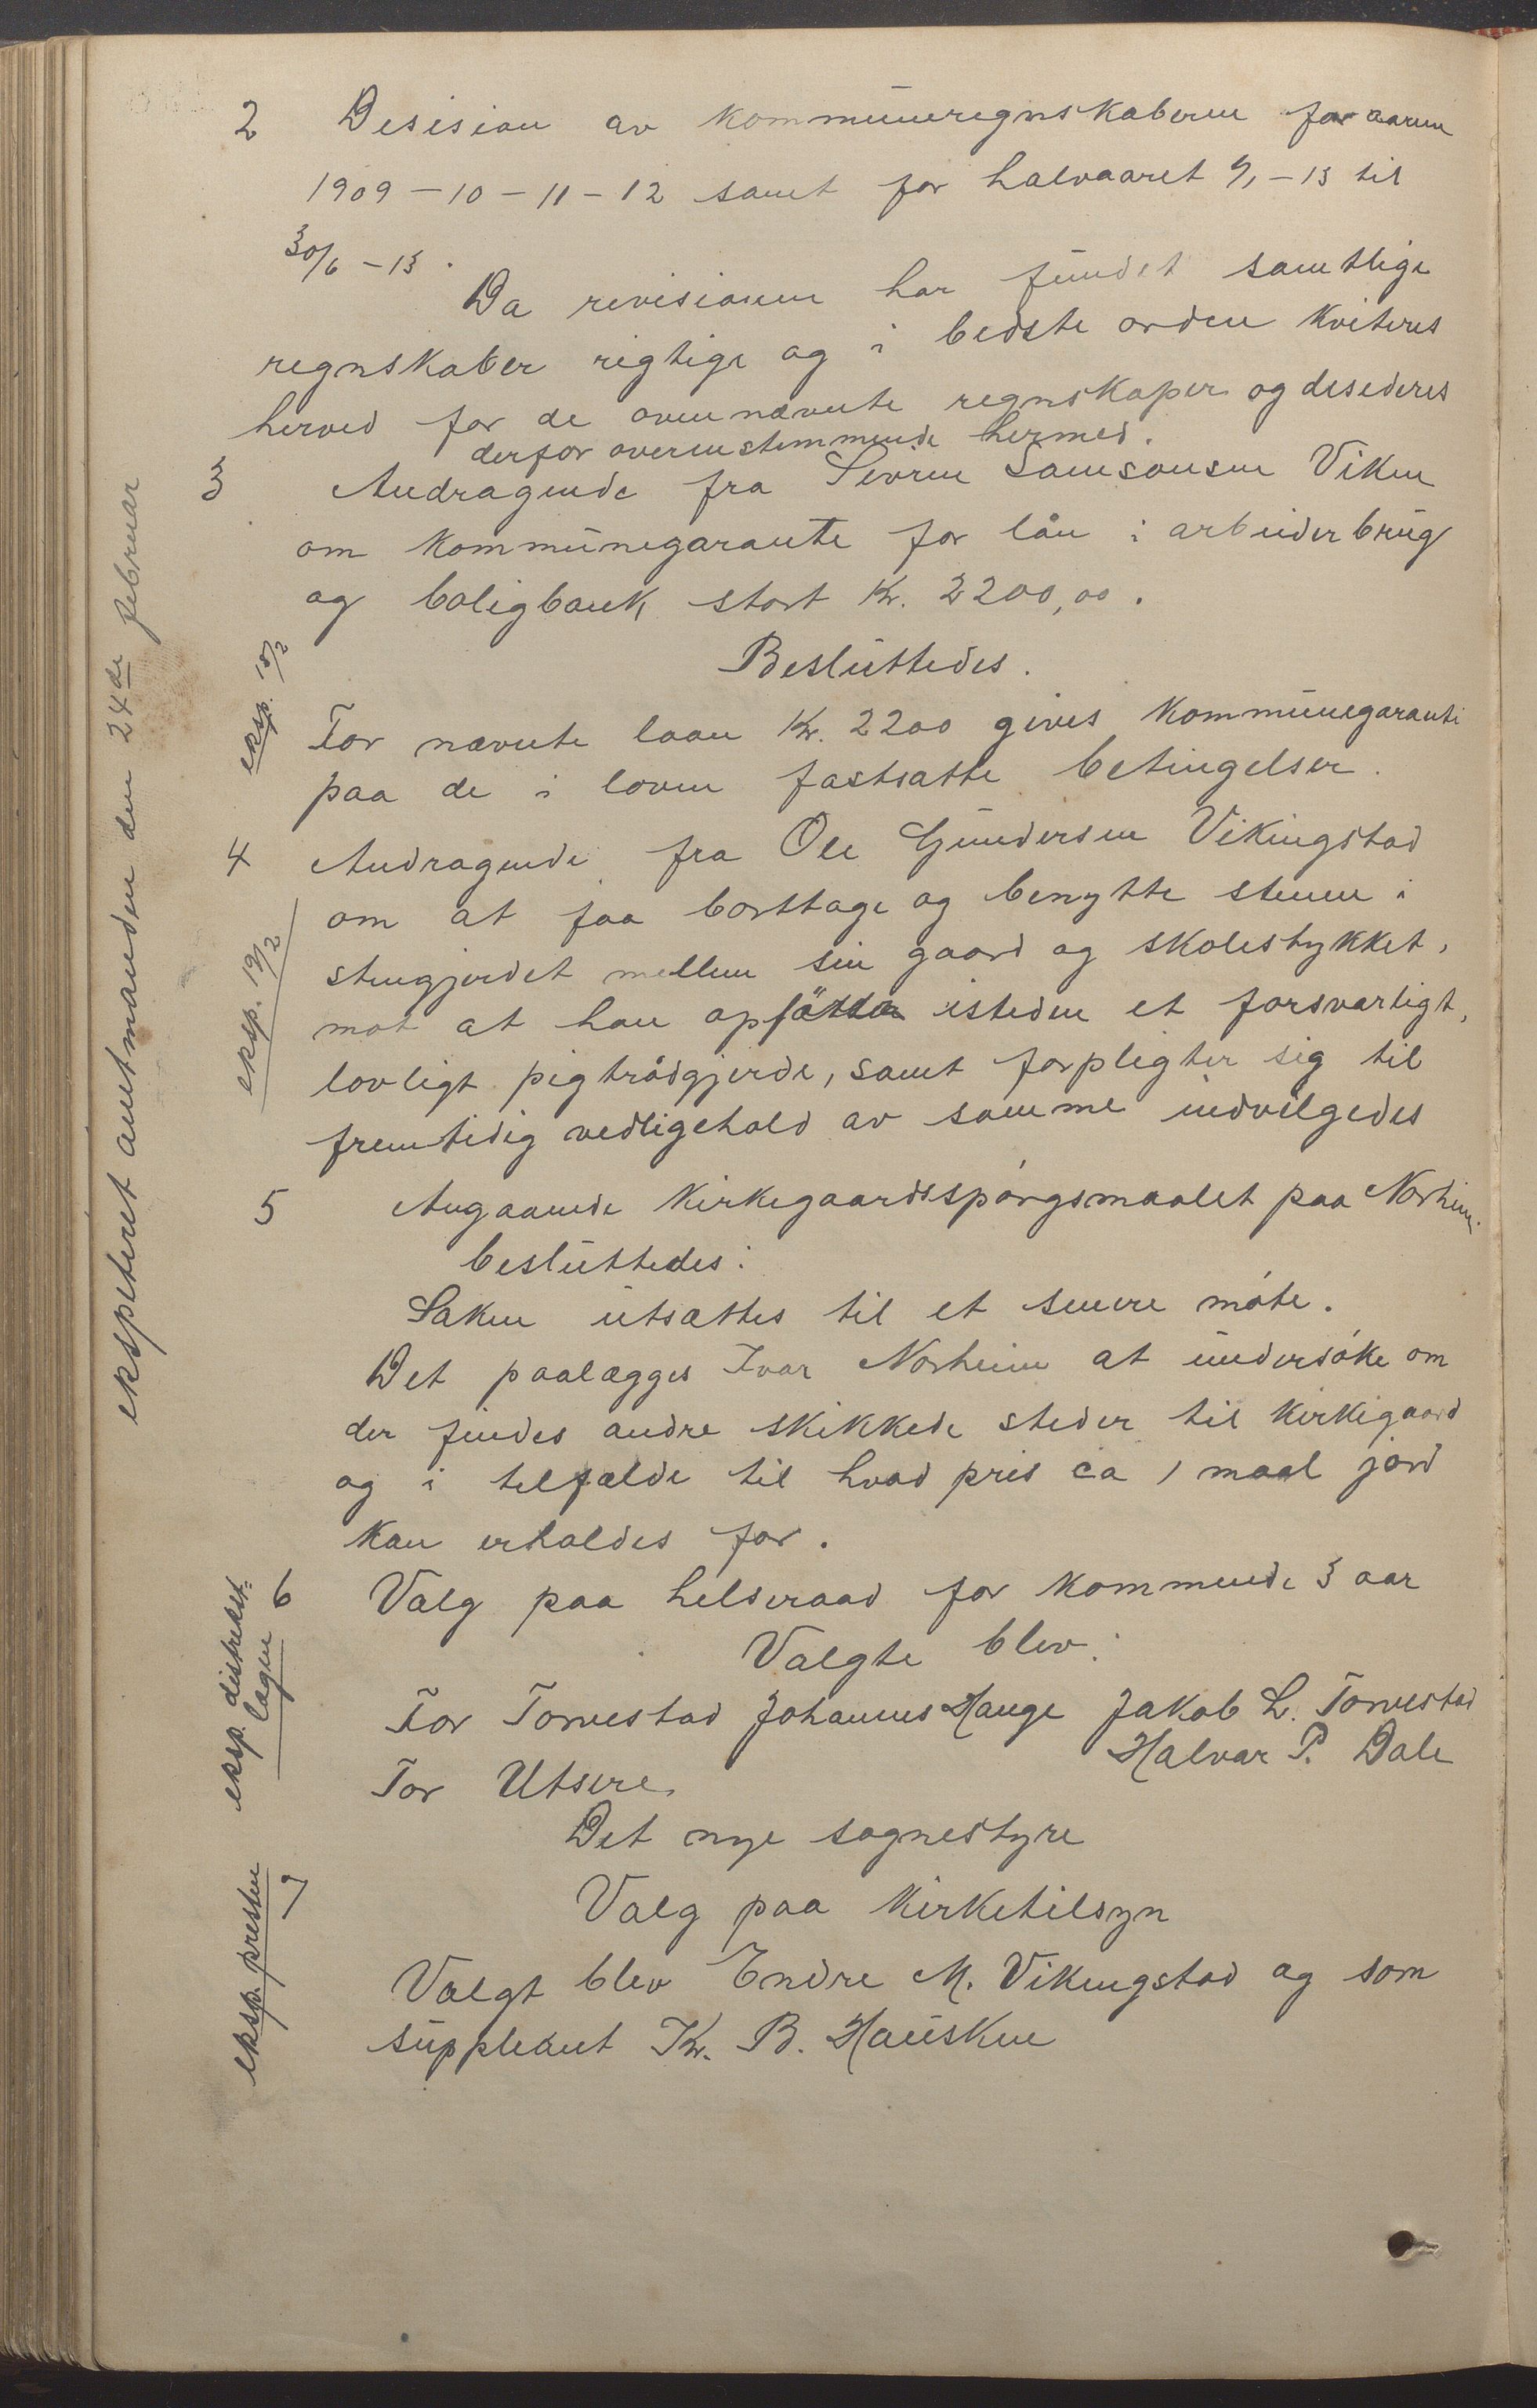 2 Desision av kommuneregnskaberne for aarene
1909 – 10 – 11 – 12 samt for halvaaret 1/1 – 13 til
30/6 – 13.
Da revisionen har fundet samtlige
regnskaber rigtige og i bedste orden kviteres
herved for de ovennævnte regnskaper og desideres
derfor overenstemmende hermed.
3 Andragende fra Sevrin Samsonsen Viken
om kommunegarante for lån i arbeiderbrug
og boligbank stort Kr. 2200,00.
Besluttedes.
eksp. 18/2
For nævnte laan Kr. 2200 gives kommunegaranti
paa de i loven fastsatte betingelser.
4 Andragende fra Ole Gundersen Vikingstad
om at faa borttage og benytte stenen i
eksp. 19/2
stengjerdet mellem sin gaard og skolestykket,
mot at han opsätter isteden et forsvarligt,
lovligt pigtrådgjerde, samt forpligter sig til
fremtidig vedligehold av samme indvilgedes
ekspederet amtmanden den 24de februar
5 Angaaende kirkegaardsspórgsmaalet paa Norheim
besluttedes:
Saken utsættes til et senere móte.
Det paalægges Ivar Norheim at undersóke om
der findes andre skikkede steder til kirkegaard
og i telfælde til hvad pris ca 1 maal jord
kan erholdes for.
6 Valg paa helseraad for kommende 3 aar
eksp. distrikts=
lægen
Valgte blev:
For Torvestad Johannes Hauge Jakob L. Torvestad
Halvar P. Dale
For Utsire.
Det nye sognestyre
7 Valg paa kirketilsyn
eksp. presten
Valgt blev Endre M. Vikingstad og som
suppleant Kr. B. Hausken